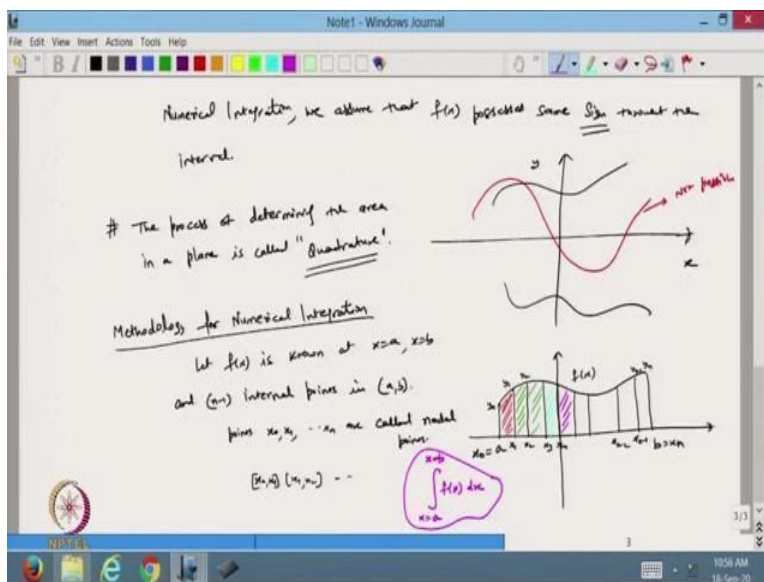 Note1 - Windows Journal
File Edit View Insert Actions Tools Help
Numerical Integration, we assume that f(x) possesses same sign the
interval.
# The process of determining the area
in a plane is called "Quadrature".
y
Not possible
x
Methodology for Numerical Integration
Let f(x) is known at x=a, x=b
and (n-1) internal points in (a,b).
points x₀, x₁, ... xₙ are called nodal
points.
[x₀,x₁] [x₁,x₂] --
x=b
∫ f(x) dx
x=a
f(x)
y₀ y₁ y₂
x₀=a x₁ x₂ x₃ x₄ xₙ₋₂ xₙ₋₁ b=xₙ
NPTEL
3
3/3
10:56 AM
18-Sep-20